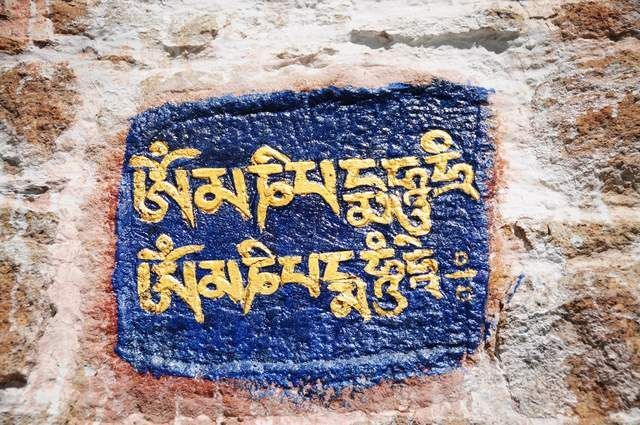 ཨོཾམཎིཔདྨཧཱུཾཧྲཾ
ཨོཾམཎིཔདྨཧཱུཾཧྲཱིཿ